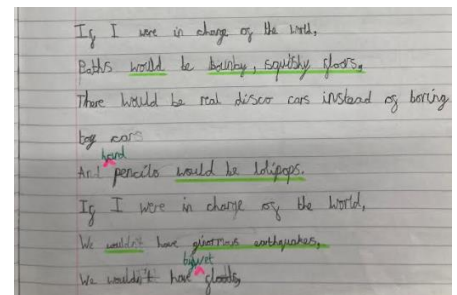 If I were in charge of the world,
would be squishy floors,
There would be real disco cars instead of boring
toy cars
And pencils would be lolipops.
If I were in charge of the world,
We wouldn't have ginormous earthquakes,
We wouldn't have floods,